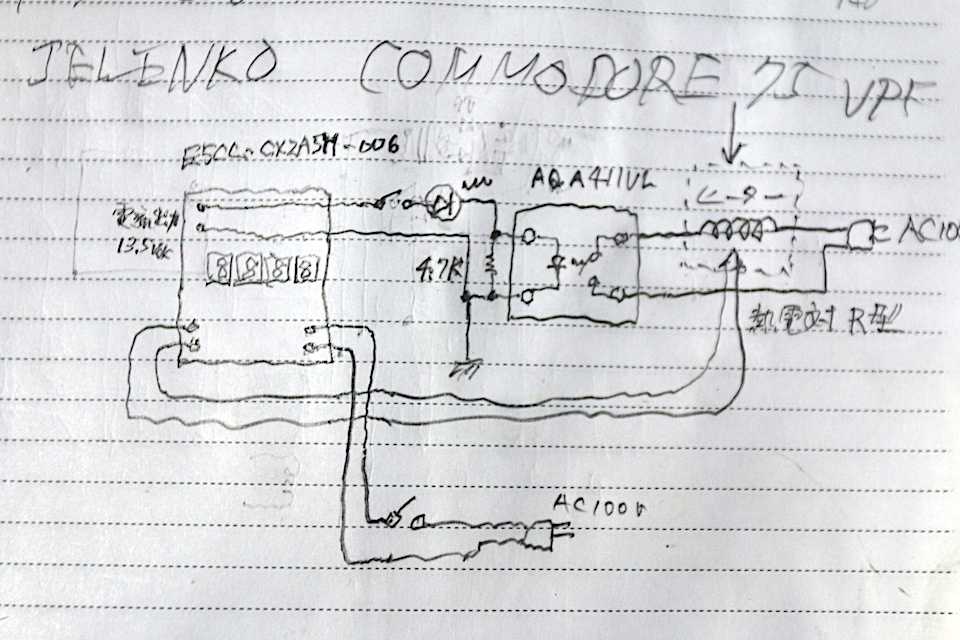 JELENKO COMMODORE 75 VPF
E5CC-CX2A5M-006
AQA411VL
ヒーター
電流出力
13.5Vdc
8 8 8 8
4.7K
AC100
熱電対 R型
AC100V